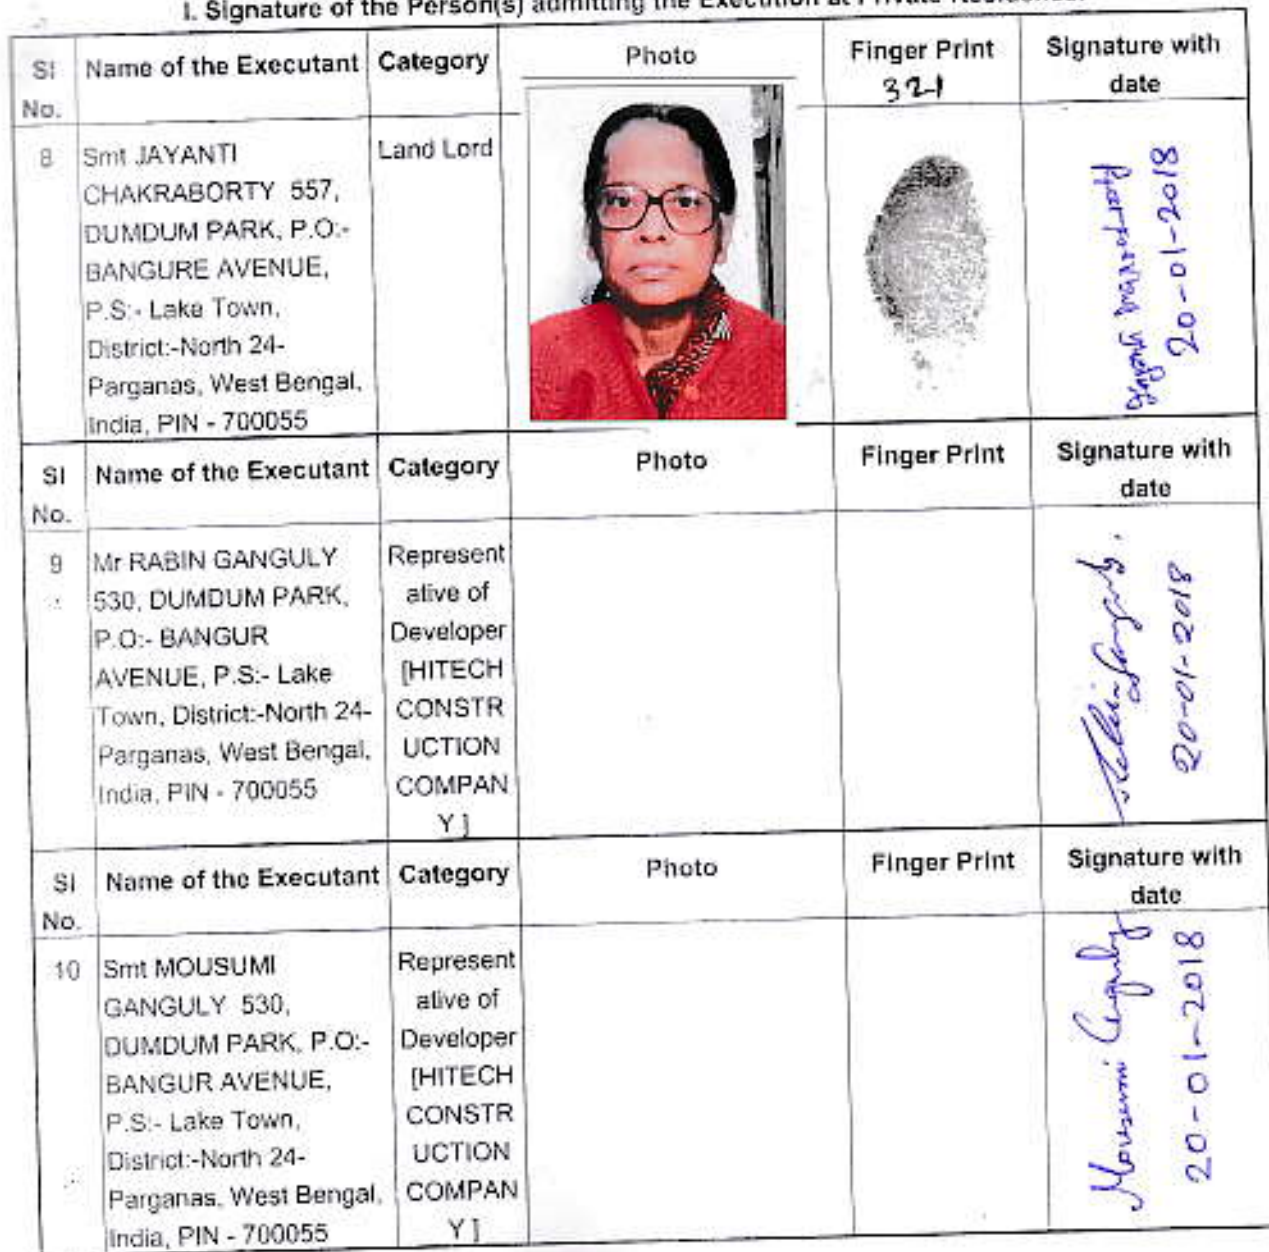 I. Signature of the Person(s) admitting the Execution at Private Residence.
Sl No. Name of the Executant Category Photo Finger Print Signature with date
321
8
Smt JAYANTI
CHAKRABORTY 557,
DUMDUM PARK, P.O:-
BANGURE AVENUE,
P.S:- Lake Town,
District:-North 24-
Parganas, West Bengal,
India, PIN - 700055
Land Lord
Jayanti Chakraborty
20-01-2018
Sl No. Name of the Executant Category Photo Finger Print Signature with date
9
Mr RABIN GANGULY
530, DUMDUM PARK,
P.O:- BANGUR
AVENUE, P.S:- Lake
Town, District:-North 24-
Parganas, West Bengal,
India, PIN - 700055
Represent
ative of
Developer
[HITECH
CONSTR
UCTION
COMPAN
Y ]
Rabin Ganguly.
20-01-2018
Sl No. Name of the Executant Category Photo Finger Print Signature with date
10
Smt MOUSUMI
GANGULY 530,
DUMDUM PARK, P.O:-
BANGUR AVENUE,
P.S:- Lake Town,
District:-North 24-
Parganas, West Bengal,
India, PIN - 700055
Represent
ative of
Developer
[HITECH
CONSTR
UCTION
COMPAN
Y ]
Mousumi Ganguly
20-01-2018